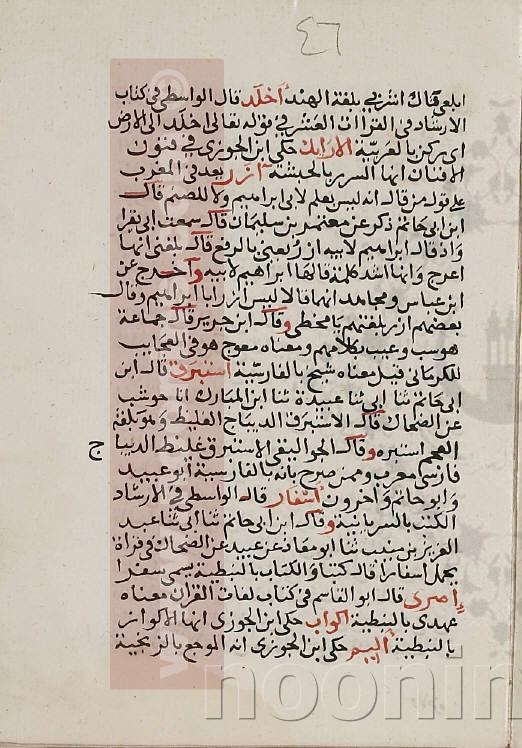 ٤٦
ابلعي قال اشربي بلغة الهند أخلد قال الواسطى فى كتاب
الارشاد فى القراآت العشر فى قوله تعالى اخلد الى الارض
اى ركن بالعبرية الارايك حكى ابن الجوزى فى فنون
الافنان انها السرر بالحبشية آزر يعد فى المعرب
على قول من قال انه ليس بعلم لابى ابراهيم ولا للصنم قال
ابن ابى حاتم ذكر عن معتمر بن سليمان قال سمعت ابى يقرا
واذ قال ابراهيم لابيه ازر يعنى بالرفع قال بلغنى انها
اعوج وانها اشد كلمة قالها ابراهيم لابيه واخرج عن
ابن عباس ومجاهد انهما قالا ليس ازر ابا ابراهيم وقال
بعضهم ازر بلغتهم يا مخطى وقال ابن جرير قال جماعة
هو سب وعيب بكلامهم ومعناه معوج هو فى العجايب
للكرمانى قيل معناه شيخ بالفارسية استبرق قال ابن
ابى حاتم ثنا ابى ثنا عبيدة ثنا ابن المبارك انا جويبر
عن الضحاك قال الاستبرق الديباج الغليظ وهو بلغة
العجم استبره وقال الجواليقى الاستبرق غليظ الديباج
فارسى معرب وممن صرح بانه بالفارسية ابو عبيد
وابو حاتم وآخرون اسفار قال الواسطى فى الارشاد
الكتب بالسريانية وقال ابن ابى حاتم ثنا ابى ثنا عبد
العزيز بن منيب ثنا ابو معاذ عن عبيد عن الضحاك فى قراة
يحمل اسفارا قال كتبا والكتاب بالنبطية يسمى سفرا
إصرى قال ابو القاسم فى كتاب لغات القران معناه
عهدى بالنبطية اكواب حكى ابن الجوزى انها الاكواز
بالنبطية أليم حكى ابن الجوزى انه الموجع بالزنجية
noonin